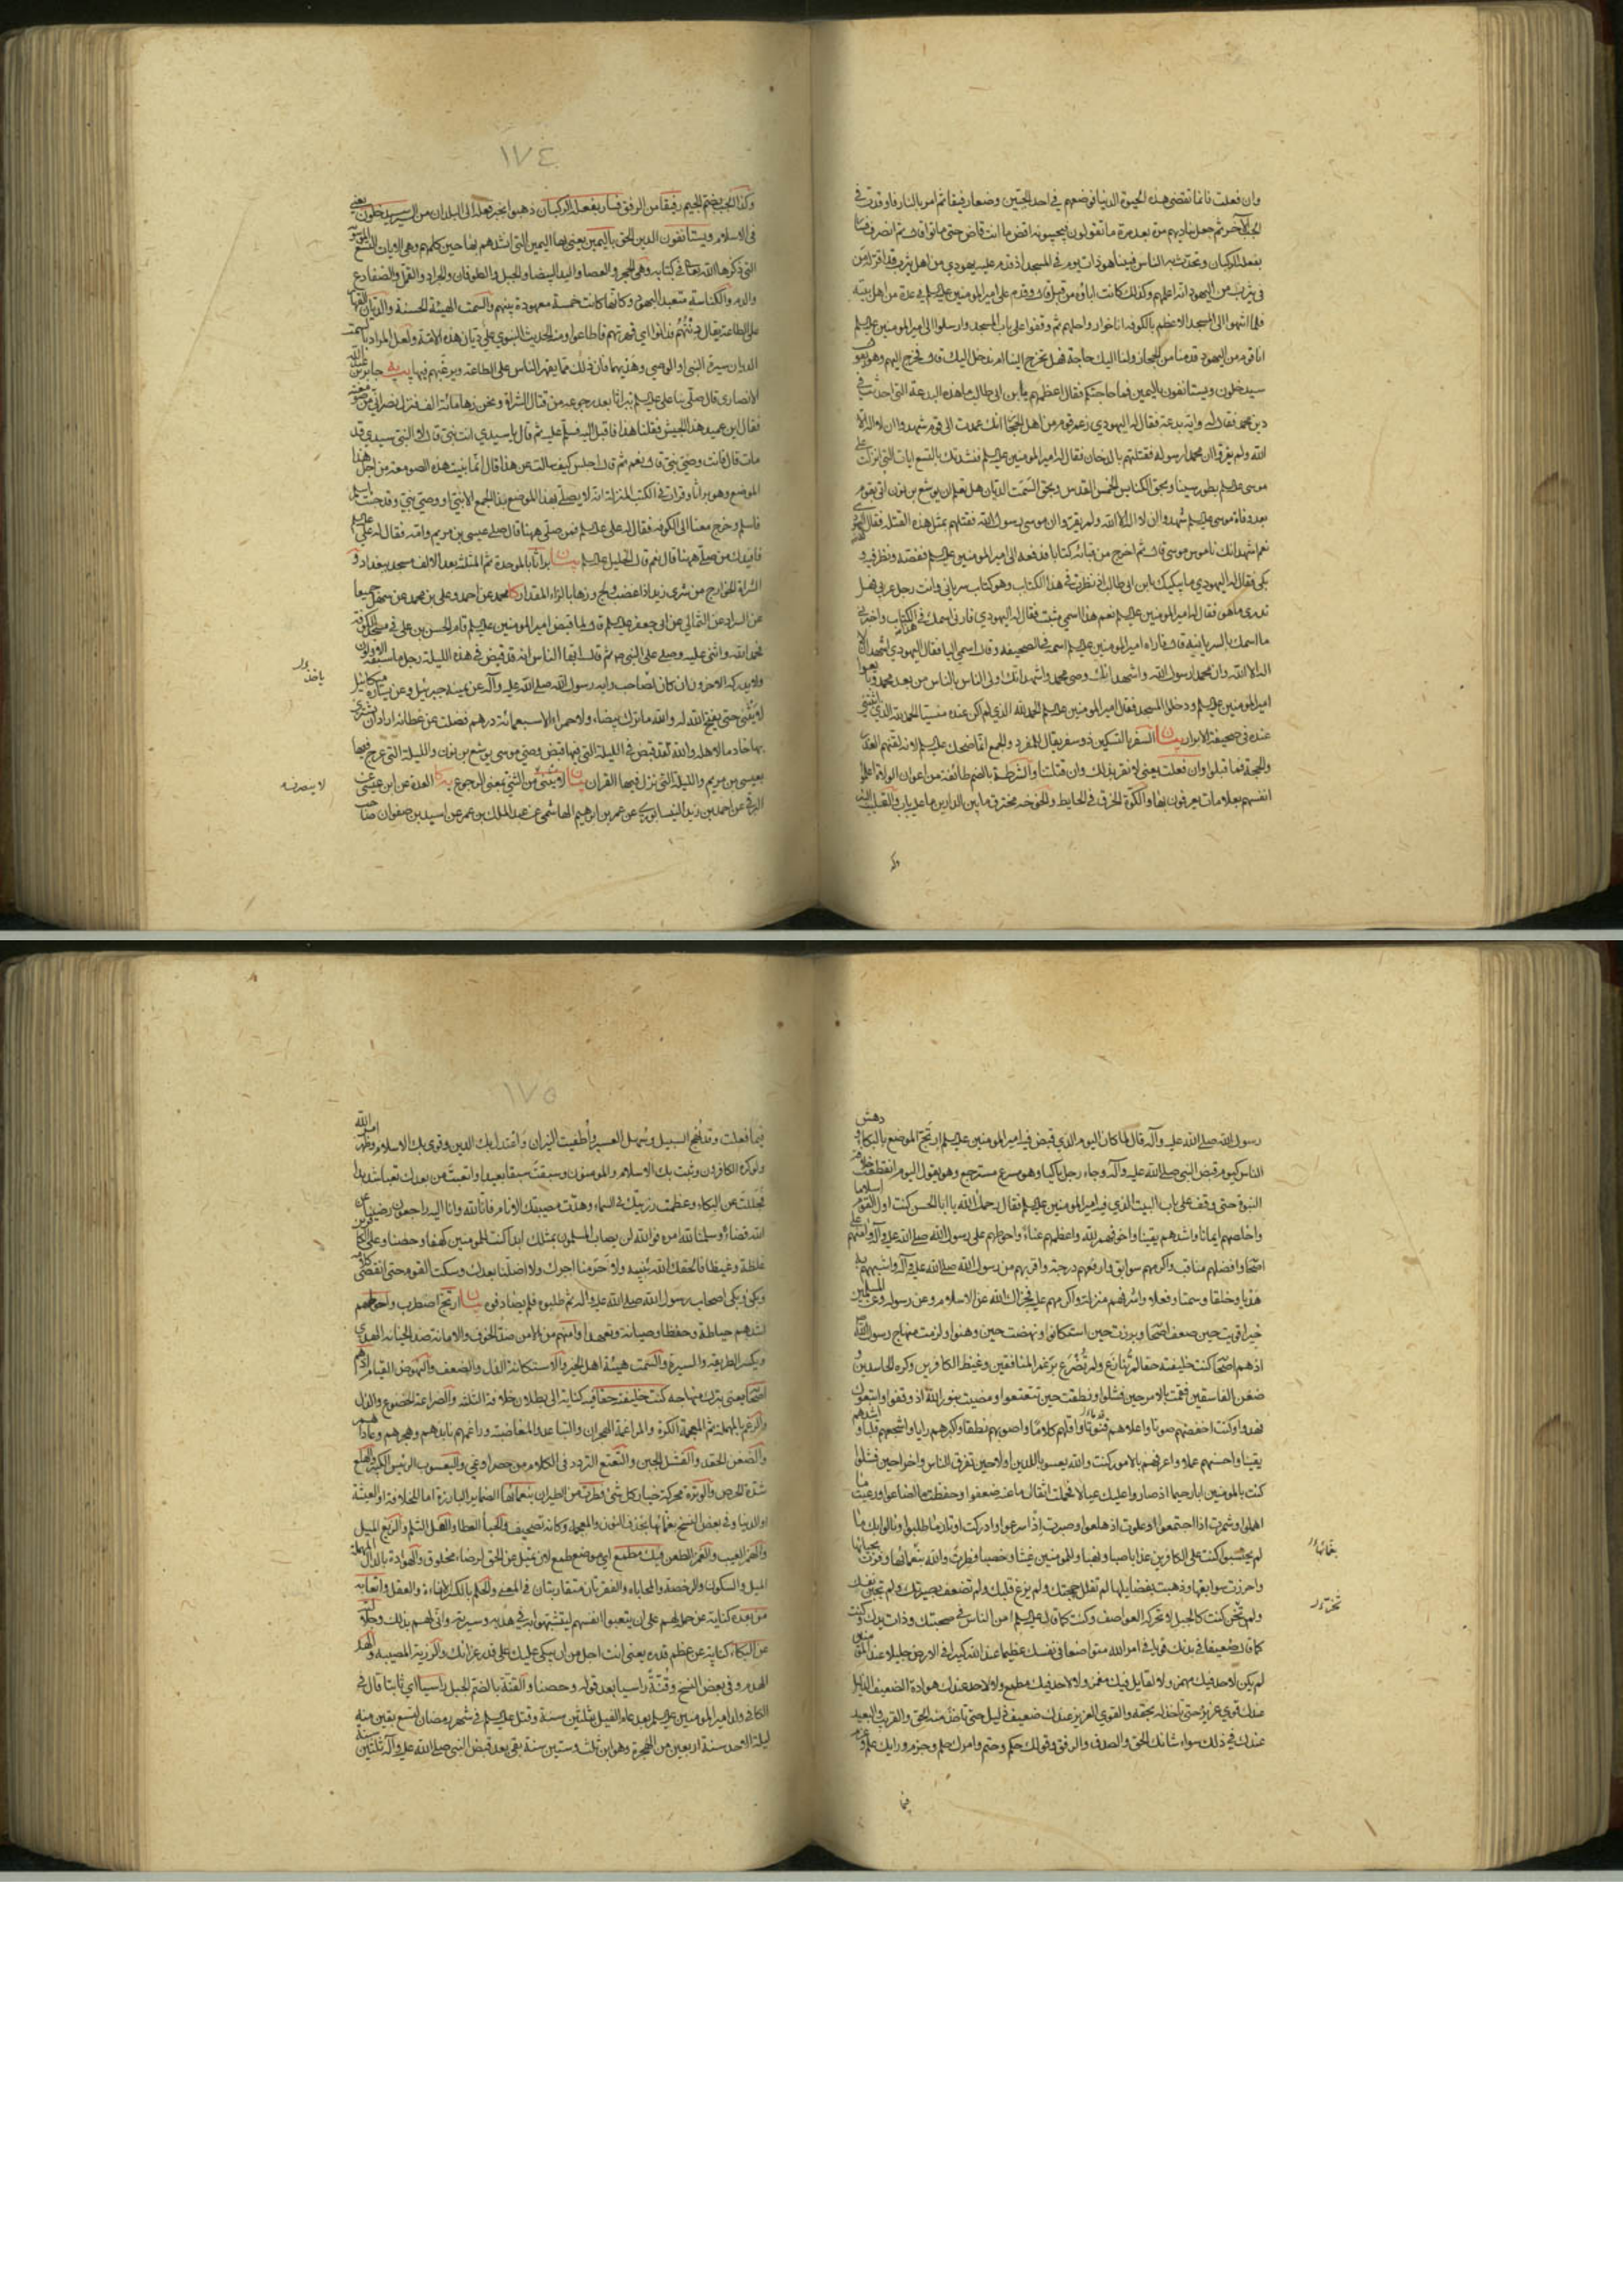 وان فعلت فانما تقضى هذه الحيوة الدنيا فوضعهم في احد الجبين وضعا رفيقا ثم امر بالنار فاوقدت في
الجب الآخر ثم جعل يناديهم مرة بعد مرة ما تقولون فيجيبونه اقض ما انت قاض حتى ماتوا قال ثم انصرف فسار
بفعله الركبان وتحدث به الناس فبينا هو ذات يوم في المسجد اذ قدم عليه يهودي من اهل يثرب قد اقر له من
في يثرب من اليهود انه اعلمهم وكذلك كانت اباؤه من قبل قال وقدم على امير المؤمنين عليه السلم في عدة من اهل بيته
فلما انتهوا الى المسجد الاعظم بالكوفه اناخوا رواحلهم ثم وقفوا على باب المسجد وارسلوا الى امير المؤمنين عليه السلم
انا قوم من اليهود قدمنا من الحجاز ولنا اليك حاجة فهل تخرج الينا ام ندخل اليك قال فخرج اليهم وهو يقول
سيدخلون ويستانفون باليمين فما حاجتكم فقال اعظمهم يا بن ابي طالب ما هذه البدعة التي احدثت في
دين محمد فقال له واية بدعة فقال له اليهودي زعم قوم من اهل الحجاز انك عمدت الى قوم شهدوا ان لا اله الا
الله ولم يقروا ان محمدا رسوله فقتلتهم بالدخان فقال له امير المؤمنين عليه السلم فنشدتك بالتسع ايات التي انزلت على
موسى عليه السلم بطور سينا وبحق الكنايس الخمس القدس وبحق السمت الديان هل تعلم ان يوشع بن نون اتي بقوم
بعد وفاة موسى عليه السلم شهدوا ان لا اله الا الله ولم يقروا ان موسى رسول الله فقتلهم بمثل هذه القتلة فقال له اليهودي
نعم اشهد انك ناموس موسى قال ثم اخرج من قبائه كتابا فدفعه الى امير المؤمنين عليه السلم ففضه ونظر فيه و
بكى فقال له اليهودي ما يبكيك يا بن ابي طالب انما نظرت في هذا الكتاب وهو كتاب سرياني وانت رجل عربي فهل
تدري ما هو فقال له امير المؤمنين عليه السلم نعم هذا اسمي مثبت فقال له اليهودي فارني اسمك في هذا الكتاب واخبرني
ما اسمك بالسريانية قال فاراه امير المؤمنين عليه السلم اسمه في الصحيفة وقال اسمي اليا فقال اليهودي اشهد ان لا
اله الا الله وان محمدا رسول الله واشهد انك وصي محمد واشهد انك اولى الناس بالناس من بعد محمد وبايعوا
امير المؤمنين عليه السلم ودخل المسجد فقال امير المؤمنين عليه السلم الحمد لله الذي لم اكن عنده منسيا الحمد لله الذي اثبتني
عنده في صحيفة الابرار بيان السفر بالتسكين ذو سفر يقال للمفرد والجمع انما ضحك عليه السلم لانه لقنهم العذر
والحجة فما قبلوا وان فعلت يعني لا نقر بذلك وان قتلتنا والشرطة بالضم طائفة من اعوان الولاة اعلموا
انفسهم بعلامات يعرفون بها والكوة الخرق في الحايط والخوخة مخترق ما بين الدارين ما عليه باب والقليب البئر
وكذا الجب بضم الجيم رفيقا من الرفق فسار بفعله الركبان ذهبوا بخبر فعله الى البلدان من السير سيدخلون يعني
في الاسلام ويستانفون الدين الحق باليمين يعني بها اليمين التي انشدهم بها حين كلمهم وهي الايات التسع
التي ذكرها الله تعالى في كتابه وهي الحجر والعصا واليد البيضا والجبل والطوفان والجراد والقمل والضفادع
والدم والكناسة متعبد اليهود وكانها كانت خمسة معهودة بينهم والسمت الهيئة الحسنة والديان القهار
على الطاعة يقال دنتهم فدانوا اي قهرتهم فاطاعوا ومنه الحديث النبوي علي ديان هذه الامة ولعل المراد بالسمت
الديان سيرة النبي او الوصي وهديهما فان ذلك مما يقهر الناس على الطاعة ويرغبهم فيها يب يه جابر بن عبد الله
الانصاري قال صلى بنا علي عليه السلم ببراثا بعد رجوعه من قتال الشراة ونحن زهاء مائة الف فنزل نصراني من صومعته
فقال اين عميد هذا الجيش فقلنا هذا فاقبل اليه فسلم عليه ثم قال يا سيدي انت نبي قال لا النبي سيدي قد
مات قال فانت وصي نبي قال نعم ثم قال اجلس كيف سالت عن هذا قال انما بنيت هذه الصومعة من اجل هذا
الموضع وهو براثا وقرات في الكتب المنزلة انه لا يصلي بهذا الموضع بذا الجمع الا نبي او وصي نبي وقد جئت اسلم
فاسلم وخرج معنا الى الكوفه فقال له علي عليه السلم فمن صلى ههنا قال صلى عيسى بن مريم وامه فقال له علي عليه السلم
فافيدك من صلى ههنا قال نعم قال الخليل عليه السلم بيان براثا بالموحدة ثم المثلثة بعد الالف مسجد ببغداد و
الشراة الخوارج من شرى زيد اذا غضب ولج وزها بالزاء المقدار كا محمد عن احمد وعلي بن محمد عن سهل جميعا
عن السراد عن الثمالي عن ابي جعفر عليه السلم قال لما قبض امير المؤمنين عليه السلم قام الحسن بن علي في مسجد الكوفة
فحمد الله واثنى عليه وصلى على النبي ص ثم قال ايها الناس انه قد قبض في هذه الليلة رجل ما سبقه الاولون
ولا يدركه الاخرون ان كان لصاحب راية رسول الله صلى الله عليه وآله عن يمينه جبرئيل وعن يساره ميكائيل
لا ينثني حتى يفتح الله له والله ما ترك بيضاء ولا حمراء الا سبعمائة درهم فضلت عن عطائه اراد ان يشتري
بها خادما لاهله والله لقد قبض في الليلة التي فيها قبض وصي موسى يوشع بن نون والليلة التي عرج فيها
بعيسى بن مريم والليلة التي نزل فيها القران بيان لا ينثني من الثني بمعنى الرجوع يه كا العدة عن ابن عيسى عن
البرقي عن احمد بن زيد النيسابوري عن عمر بن ابرهيم الهاشمي عن عبد الملك بن عمر عن اسيد بن صفوان صاحب
لا ينصرف
١٧٤
رسول الله صلى الله عليه وآله قال لما كان اليوم الذي قبض فيه امير المؤمنين عليه السلم ارتج الموضع بالبكاء و دهش
الناس كيوم قبض النبي صلى الله عليه وآله وجاء رجل باكيا وهو مسرع مسترجع وهو يقول اليوم انقطعت خلافة
النبوة حتى وقف على باب البيت الذي فيه امير المؤمنين عليه السلم فقال رحمك الله يا ابا الحسن كنت اول القوم اسلاما
واخلصهم ايمانا واشدهم يقينا واخوفهم لله واعظمهم عناء واحوطهم على رسول الله صلى الله عليه وآله وامنهم على
اصحابه وافضلهم مناقب واكرمهم سوابق وارفعهم درجة واقربهم من رسول الله صلى الله عليه وآله واشبههم به
هديا وخلقا وسمتا وفعلا واشرفهم منزلة واكرمهم عليه فجزاك الله عن الاسلام وعن رسوله وعن المسلمين
خيرا قويت حين ضعف اصحابه وبرزت حين استكانوا ونهضت حين وهنوا ولزمت منهاج رسول الله ص
اذ هم اصحابه كنت خليفته حقا لم تنازع ولم تضرع برغم المنافقين وغيظ الكافرين وكره الحاسدين و
ضغن الفاسقين فقمت بالامر حين فشلوا ونطقت حين تتعتعوا ومضيت بنور الله اذ وقفوا واتبعوك
فهدوا وكنت اخفضهم صوتا واعلاهم قنوتا واقلهم كلاما واصوبهم نطقا واكبرهم رايا واشجعهم قلبا و اشدهم
يقينا واحسنهم عملا واعرفهم بالامور كنت والله يعسوبا للدين اولا حين تفرق الناس واخرا حين فشلوا
كنت بالمؤمنين ابا رحيما اذ صاروا عليك عيالا فحملت اثقال ما عنه ضعفوا وحفظت ما اضاعوا ورعيت ما
اهملوا وشمرت اذا اجتمعوا وعلوت اذ هلعوا وصبرت اذا سرعوا وادركت اوتار ما طلبوا ونالوا بك ما
لم يحتسبوا كنت على الكافرين عذابا صبا ونهبا وللمؤمنين غيثا وخصبا فطرت والله بنعمائها وفزت بحبائها
واحرزت سوابقها وذهبت بفضايلها لم تفلل حجتك ولم يزغ قلبك ولم تضعف بصيرتك ولم تجبن نفسك
ولم تخن كنت كالجبل لا تحركه العواصف وكنت كما قال عليه السلم امن الناس في صحبتك وذات يدك وكنت
كما قال ضعيفا في بدنك قويا في امر الله متواضعا في نفسك عظيما عند الله كبيرا في الارض جليلا عند المؤمنين
لم يكن لاحد فيك مهمز ولا لقايل فيك مغمز ولا لاحد فيك مطمع ولا لاحد عندك هوادة الضعيف الذليل
عندك قوي عزيز حتى تاخذ له بحقه والقوي العزيز عندك ضعيف ذليل حتى تاخذ منه الحق والقريب والبعيد
عندك في ذلك سواء شانك الحق والصدق والرفق وقولك حكم وحتم وامرك حلم وحزم ورايك علم وعزم
فيما
١٧٥
فيما فعلت وقد نهج السبيل وسهل العسير واطفيت النيران واعتدل بك الدين وقوي بك الاسلام وظهر امر الله
ولو كره الكافرون وثبت بك الاسلام والمؤمنون وسبقت سبقا بعيدا واتعبت من بعدك تعبا شديدا
فجللت عن البكاء وعظمت رزيتك في السماء وهدت مصيبتك الانام فانا لله وانا اليه راجعون رضينا عن
الله قضاءه وسلمنا لله امره فوالله لن يصاب المسلمون بمثلك ابدا كنت للمؤمنين كهفا وحصنا وعلى الكافرين
غلظة وغيظا فالحقك الله بنبيه ولا حرمنا اجرك ولا اضلنا بعدك وسكت القوم حتى انقضى كلامه
وبكى وبكى اصحاب رسول الله صلى الله عليه وآله ثم طلبوه فلم يصادفوه بيان ارتج اضطرب واحوطهم
اشدهم حياطة وحفظا وصيانة وتعهدا وآمنهم من الامن ضد الخوف والامانة ضد الخيانة الهدي
ويكسر الطريقة والسيرة والسمت هيئة اهل الخير والاستكانة الذل والضعف والنهوض القيام اذ هم
اصحابه يعني بترك منهاجه كنت خليفته حقا فيه كناية الى بطلان خلافة الثلثة والضراعة الخضوع والذل
والرغم بالمهملة ثم المعجمة الكره والمراغمة الهجران والتباعد والمغاضبة وراغمهم نابذهم وهجرهم وعاداهم
والضغن الحقد والفشل الجبن والتعتع التردد في الكلام من حصر او عي واليعسوب الرئيس الكبير والهلع
شدة الحرص والوترة محركة خيار كل شئ فطرت من الطيران بنعمائها الضماير البارزة اما للخلافة او العيشة
او الدنيا وفي بعض النسخ بغمائها بحذف النون والمعجمة وكانه تصحيف والحبا العطا والفل الثلم والزيغ الميل
والهمز العيب والغمز الطعن فيك مطمع اي موضع طمع لان تميل عن الحق لرضاء مخلوق والهوادة بالدال المهملة
الميل والسكون والرخصة والمحاباة والفقرتان متقاربتان في المعنى والحلم بالكسر الاناءة والعقل واتعابه
من بعده كناية عن حملهم على ان يتعبوا انفسهم ليقتدوا به في هديه وسيرته وانى لهم بذلك وجلالته
عن البكاء كناية عن عظم قدره يعني انت اجل من ان يبكى عليك على قدر عزائك والرزية المصيبة والهد
الهدم وفي بعض النسخ وقنة راسيا بعد قوله وحصنا والقنة بالضم الجبل راسيا اي ثابتا قال في
الكافي ولد امير المؤمنين عليه السلم بعد عام الفيل بثلثين سنة وقتل عليه السلم في شهر رمضان لتسع بقين منه
ليلة الاحد سنة اربعين من الهجرة وهو ابن ثلث وستين سنة بقي بعد قبض النبي صلى الله عليه وآله ثلثين سنة